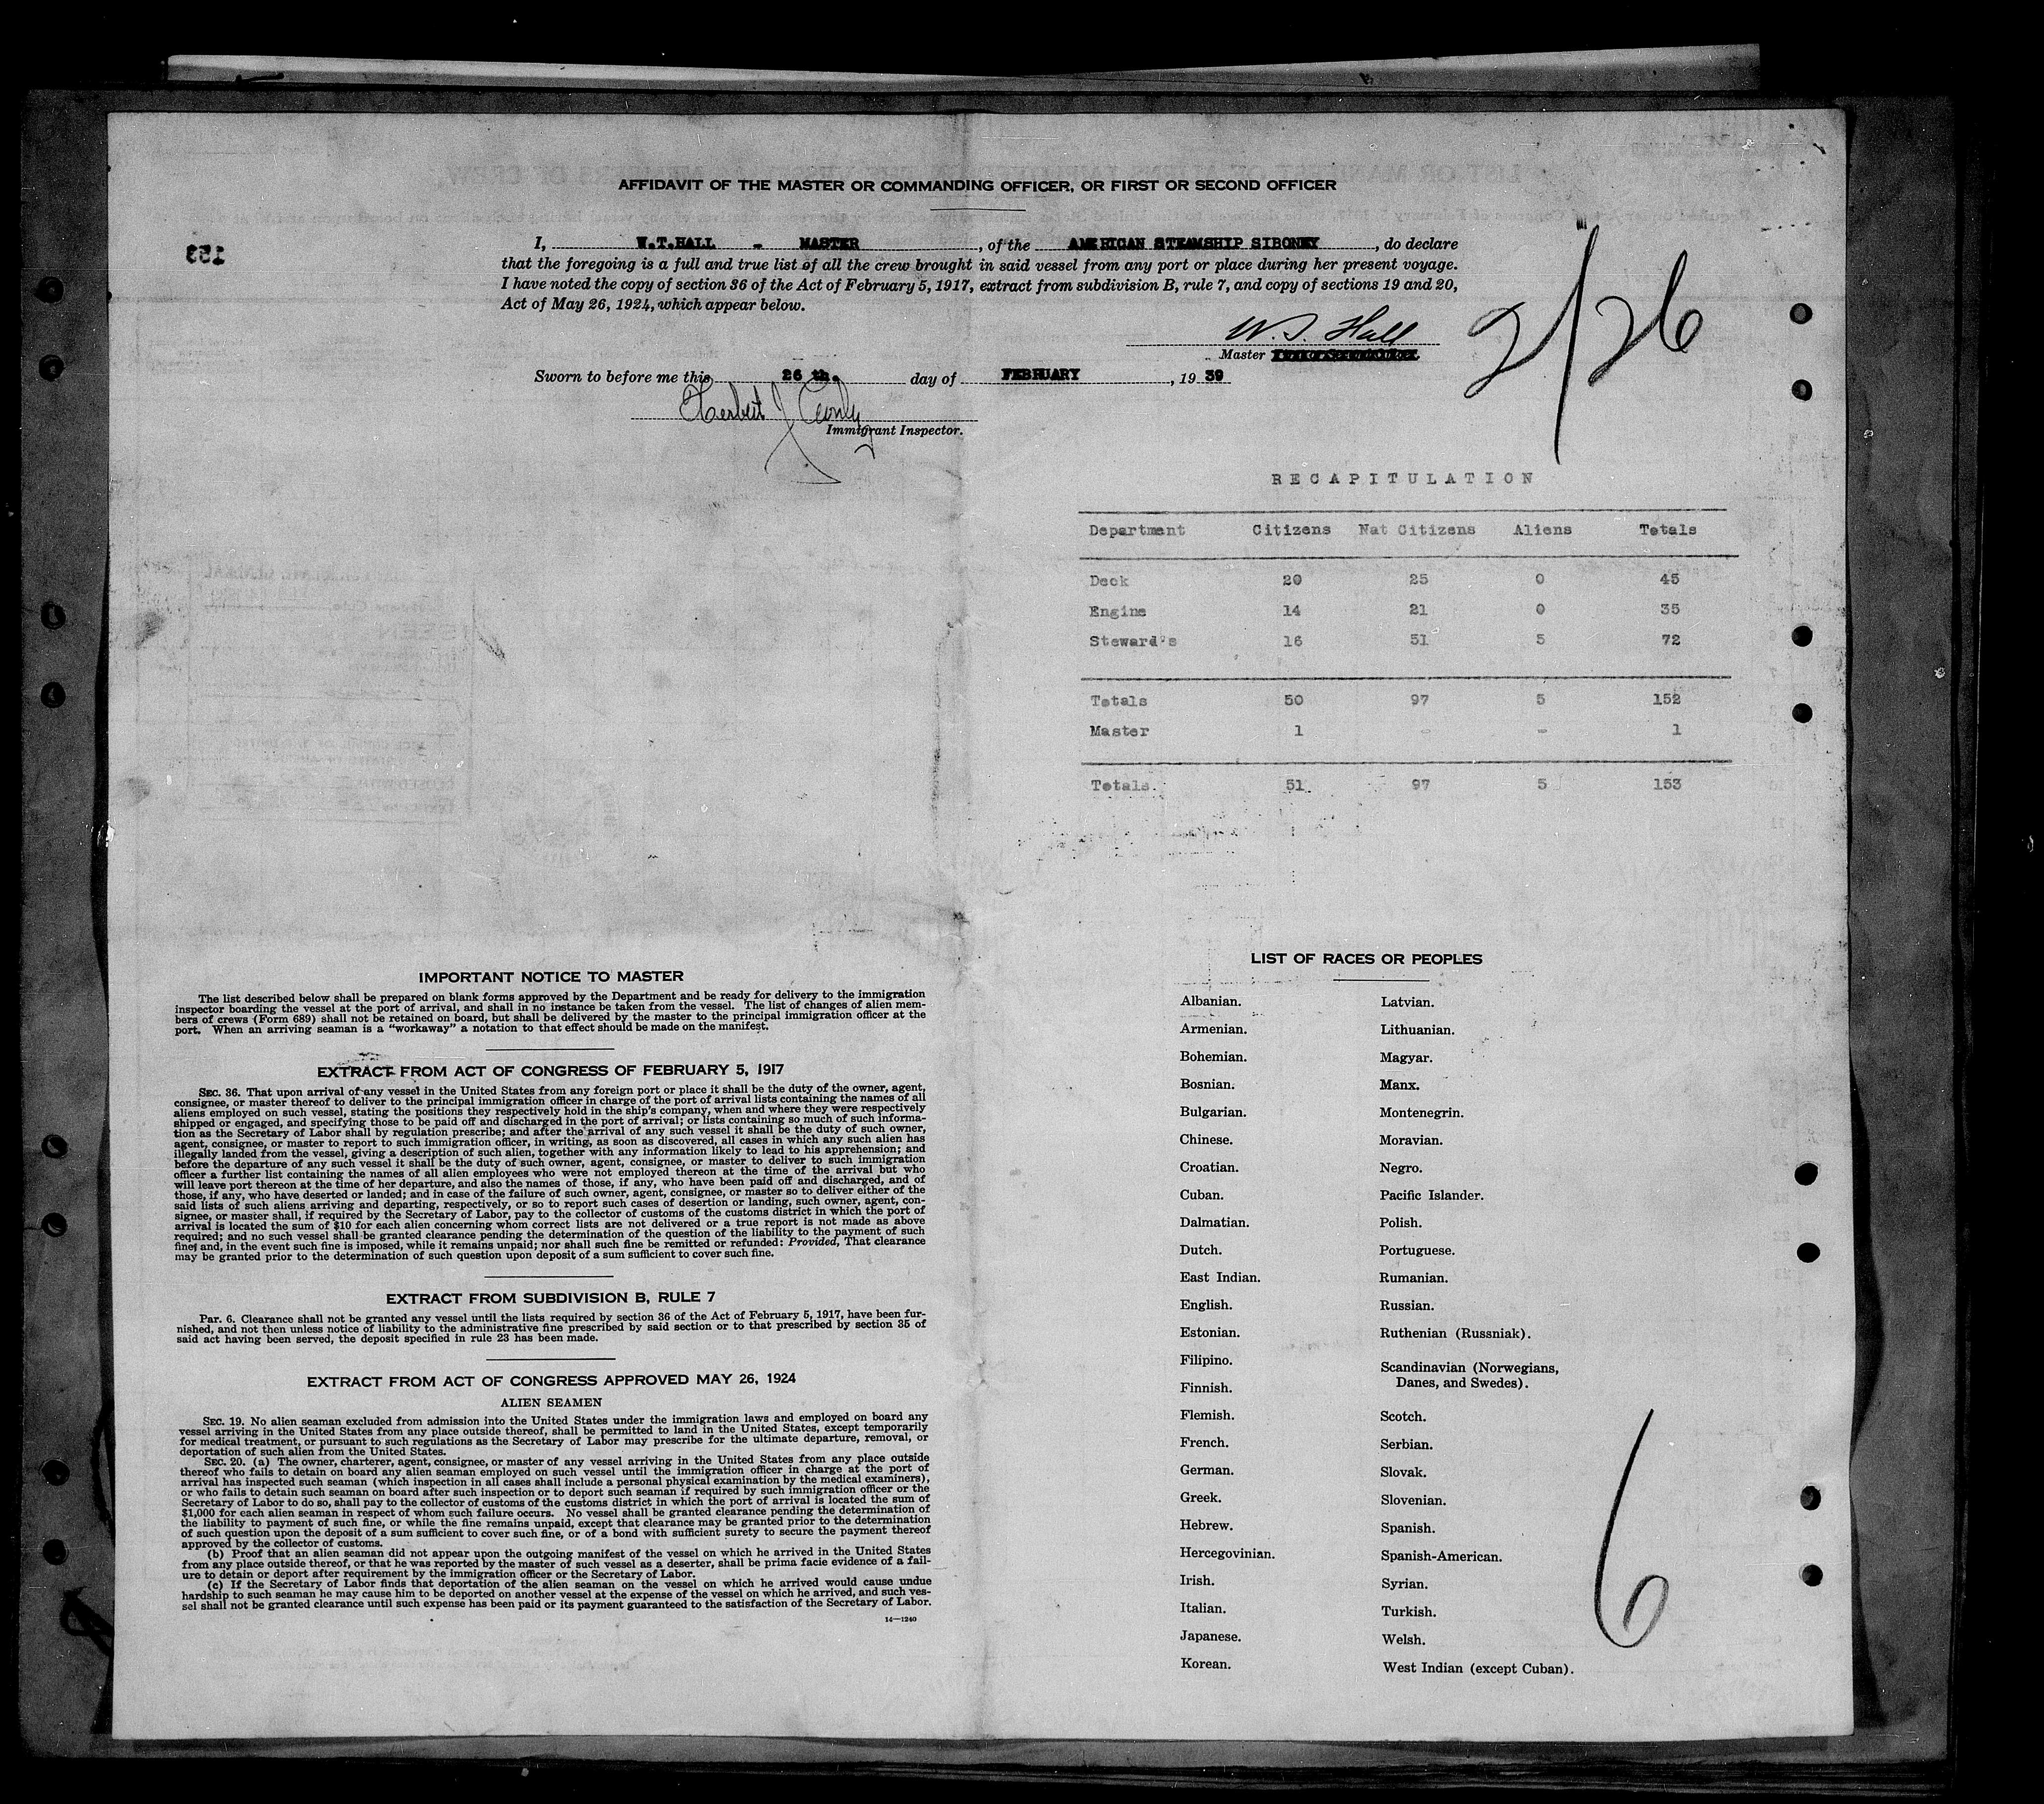 AFFIDAVIT OF THE MASTER OR COMMANDING OFFICER, OR FIRST OR SECOND OFFICER
I, W.T.HALL - MASTER, of the AMERICAN STEAMSHIP SIBONEY, do declare
that the foregoing is a full and true list of all the crew brought in said vessel from any port or place during her present voyage.
I have noted the copy of section 36 of the Act of February 5, 1917, extract from subdivision B, rule 7, and copy of sections 19 and 20,
Act of May 26, 1924, which appear below.
153
2/26
W. T. Hall
Master
Sworn to before me this 26 th. day of FEBRUARY, 19 39
Herbert J
Immigrant Inspector.
RECAPITULATION
Department Citizens Nat Citizens Aliens Totals
Deck 20 25 0 45
Engine 14 21 0 35
Steward's 16 51 5 72
Totals 50 97 5 152
Master 1 - - 1
Totals. 51 97 5 153
IMPORTANT NOTICE TO MASTER
The list described below shall be prepared on blank forms approved by the Department and be ready for delivery to the immigration
inspector boarding the vessel at the port of arrival, and shall in no instance be taken from the vessel. The list of changes of alien mem-
bers of crews (Form 689) shall not be retained on board, but shall be delivered by the master to the principal immigration officer at the
port. When an arriving seaman is a "workaway" a notation to that effect should be made on the manifest.
EXTRACT FROM ACT OF CONGRESS OF FEBRUARY 5, 1917
SEC. 36. That upon arrival of any vessel in the United States from any foreign port or place it shall be the duty of the owner, agent,
consignee, or master thereof to deliver to the principal immigration officer in charge of the port of arrival lists containing the names of all
aliens employed on such vessel, stating the positions they respectively hold in the ship's company, when and where they were respectively
shipped or engaged, and specifying those to be paid off and discharged in the port of arrival; or lists containing so much of such informa-
tion as the Secretary of Labor shall by regulation prescribe; and after the arrival of any such vessel it shall be the duty of such owner,
agent, consignee, or master to report to such immigration officer, in writing, as soon as discovered, all cases in which any such alien has
illegally landed from the vessel, giving a description of such alien, together with any information likely to lead to his apprehension; and
before the departure of any such vessel it shall be the duty of such owner, agent, consignee, or master to deliver to such immigration
officer a further list containing the names of all alien employees who were not employed thereon at the time of the arrival but who
will leave port thereon at the time of her departure, and also the names of those, if any, who have been paid off and discharged, and of
those, if any, who have deserted or landed; and in case of the failure of such owner, agent, consignee, or master so to deliver either of the
said lists of such aliens arriving and departing, respectively, or so to report such cases of desertion or landing, such owner, agent, con-
signee, or master shall, if required by the Secretary of Labor, pay to the collector of customs of the customs district in which the port of
arrival is located the sum of $10 for each alien concerning whom correct lists are not delivered or a true report is not made as above
required; and no such vessel shall be granted clearance pending the determination of the question of the liability to the payment of such
fine, and, in the event such fine is imposed, while it remains unpaid; nor shall such fine be remitted or refunded: Provided, That clearance
may be granted prior to the determination of such question upon deposit of a sum sufficient to cover such fine.
EXTRACT FROM SUBDIVISION B, RULE 7
Par. 6. Clearance shall not be granted any vessel until the lists required by section 36 of the Act of February 5, 1917, have been fur-
nished, and not then unless notice of liability to the administrative fine prescribed by said section or to that prescribed by section 35 of
said act having been served, the deposit specified in rule 23 has been made.
EXTRACT FROM ACT OF CONGRESS APPROVED MAY 26, 1924
ALIEN SEAMEN
SEC. 19. No alien seaman excluded from admission into the United States under the immigration laws and employed on board any
vessel arriving in the United States from any place outside thereof, shall be permitted to land in the United States, except temporarily
for medical treatment, or pursuant to such regulations as the Secretary of Labor may prescribe for the ultimate departure, removal, or
deportation of such alien from the United States.
SEC. 20. (a) The owner, charterer, agent, consignee, or master of any vessel arriving in the United States from any place outside
thereof who fails to detain on board any alien seaman employed on such vessel until the immigration officer in charge at the port of
arrival has inspected such seaman (which inspection in all cases shall include a personal physical examination by the medical examiners),
or who fails to detain such seaman on board after such inspection or to deport such seaman if required by such immigration officer or the
Secretary of Labor to do so, shall pay to the collector of customs of the customs district in which the port of arrival is located the sum of
$1,000 for each alien seaman in respect of whom such failure occurs. No vessel shall be granted clearance pending the determination of
the liability to payment of such fine, or while the fine remains unpaid, except that clearance may be granted prior to the determination
of such question upon the deposit of a sum sufficient to cover such fine, or of a bond with sufficient surety to secure the payment thereof
approved by the collector of customs.
(b) Proof that an alien seaman did not appear upon the outgoing manifest of the vessel on which he arrived in the United States
from any place outside thereof, or that he was reported by the master of such vessel as a deserter, shall be prima facie evidence of a fail-
ure to detain or deport after requirement by the immigration officer or the Secretary of Labor.
(c) If the Secretary of Labor finds that deportation of the alien seaman on the vessel on which he arrived would cause undue
hardship to such seaman he may cause him to be deported on another vessel at the expense of the vessel on which he arrived, and such ves-
sel shall not be granted clearance until such expense has been paid or its payment guaranteed to the satisfaction of the Secretary of Labor.
14—1240
LIST OF RACES OR PEOPLES
Albanian.
Armenian.
Bohemian.
Bosnian.
Bulgarian.
Chinese.
Croatian.
Cuban.
Dalmatian.
Dutch.
East Indian.
English.
Estonian.
Filipino.
Finnish.
Flemish.
French.
German.
Greek.
Hebrew.
Hercegovinian.
Irish.
Italian.
Japanese.
Korean.
Latvian.
Lithuanian.
Magyar.
Manx.
Montenegrin.
Moravian.
Negro.
Pacific Islander.
Polish.
Portuguese.
Rumanian.
Russian.
Ruthenian (Russniak).
Scandinavian (Norwegians,
Danes, and Swedes).
Scotch.
Serbian.
Slovak.
Slovenian.
Spanish.
Spanish-American.
Syrian.
Turkish.
Welsh.
West Indian (except Cuban).
6